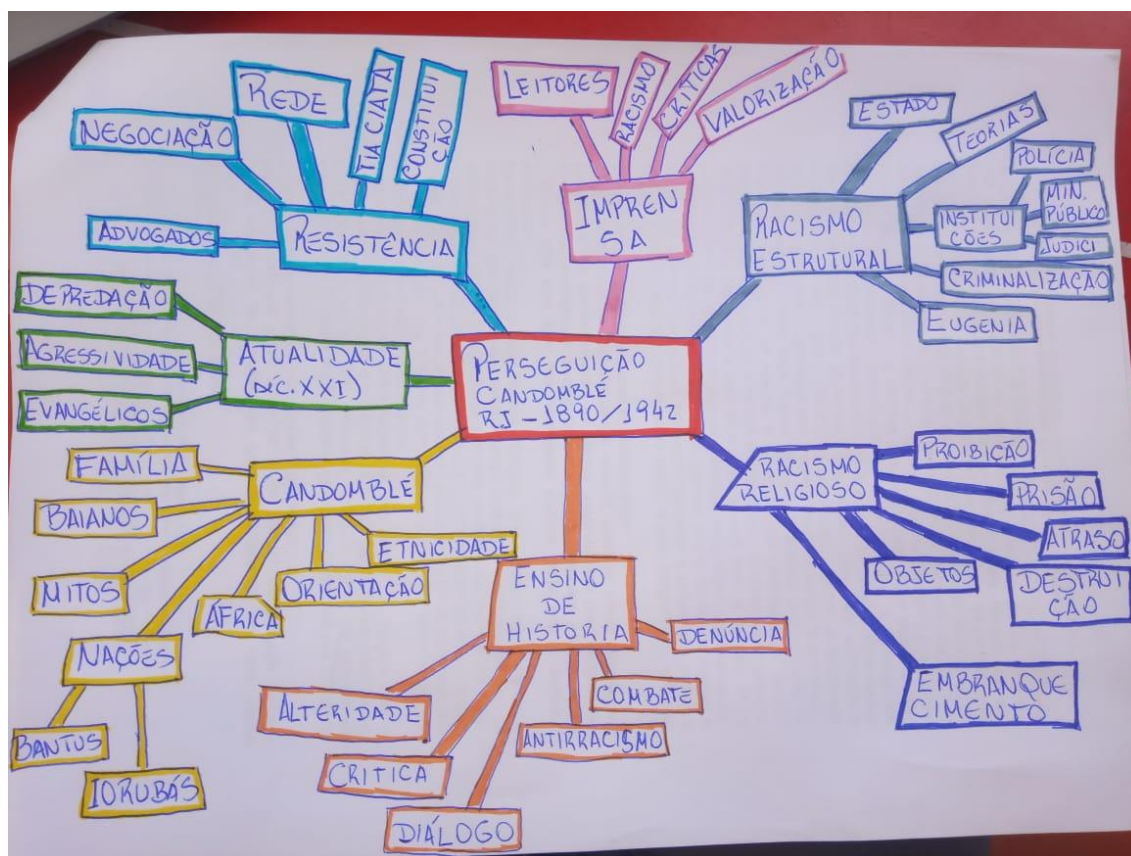 PERSEGUIÇÃO
CANDOMBLÉ
RJ - 1890/1942
RESISTÊNCIA
ADVOGADOS
NEGOCIAÇÃO
REDE
TIA CIATA
CONSTITUI
ÇÃO
IMPREN
SA
LEITORES
RACISMO
CRÍTICAS
VALORIZAÇÃO
RACISMO
ESTRUTURAL
ESTADO
TEORIAS
INSTITUI
ÇÕES
POLÍCIA
MIN.
PÚBLICO
JUDICI
CRIMINALIZAÇÃO
EUGENIA
RACISMO
RELIGIOSO
PROIBIÇÃO
PRISÃO
ATRASO
DESTRUI
ÇÃO
OBJETOS
EMBRANQUE
CIMENTO
ENSINO
DE
HISTORIA
DENÚNCIA
COMBATE
ANTIRRACISMO
DIÁLOGO
CRITICA
ALTERIDADE
CANDOMBLÉ
FAMÍLIA
BAIANOS
MITOS
NAÇÕES
BANTUS
IORUBÁS
ÁFRICA
ORIENTAÇÃO
ETNICIDADE
ATUALIDADE
(SÉC. XXI)
DEPREDAÇÃO
AGRESSIVIDADE
EVANGÉLICOS